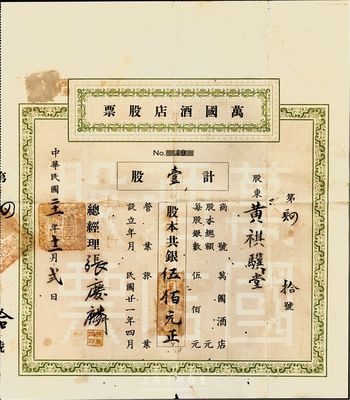 萬國酒店股票
No. 40
計壹股
第肆拾號
股東 黃祺驥堂
商號 萬國酒店
股本總額 元
每股銀數 伍佰元
股本共銀伍佰元正
營業 旅業
設立年月 民國廿一年四月
總經理 張慶麟
中華民國二十一年十一月貳日